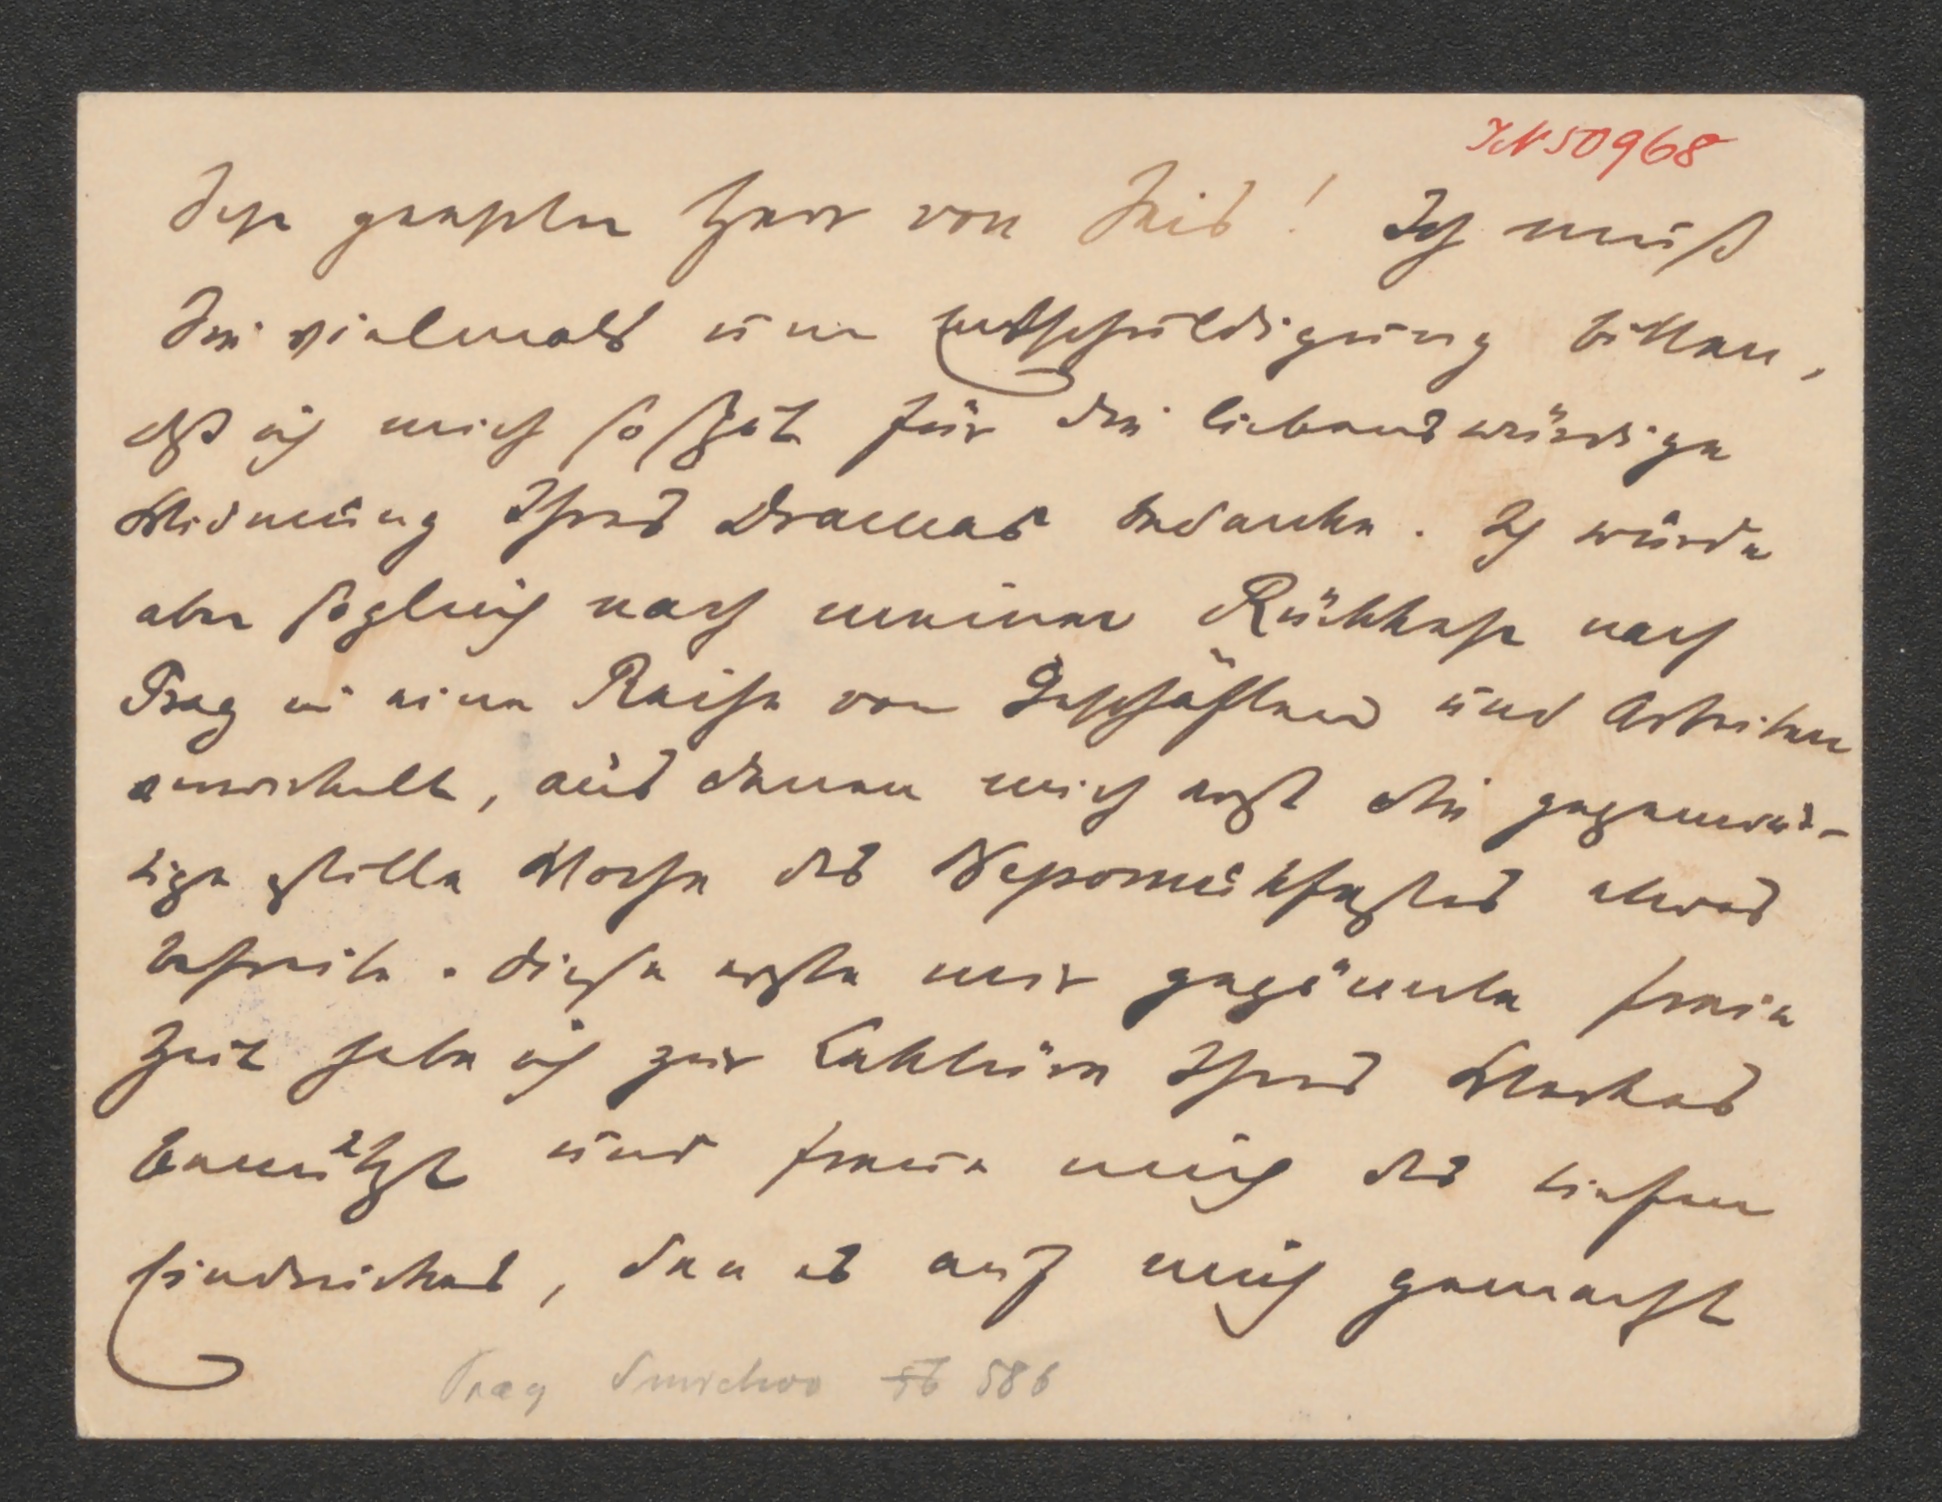 IN 50968
Sehr geehrter Herr von  ! Ich muß
Sie vielmals um Entschuldigung bitten,
dß ich mich so spät für die liebenswürdige
Widmung Ihres Dramas bedanke. Ich wurde
aber sogleich nach meiner Rückkehr nach
Prag in eine Reihe von Geschäften und Arbeiten
verwickelt, aus denen mich erst die gegenwär-
tige stille Woche des Nepomukfestes etwas
befreite. Diese erste mir gegönnte freie
Zeit habe ich zur Lektüre Ihres Werkes
benützt und freue mich des tiefen
Eindruckes, den es auf mich gemacht
Prag Smichov 586